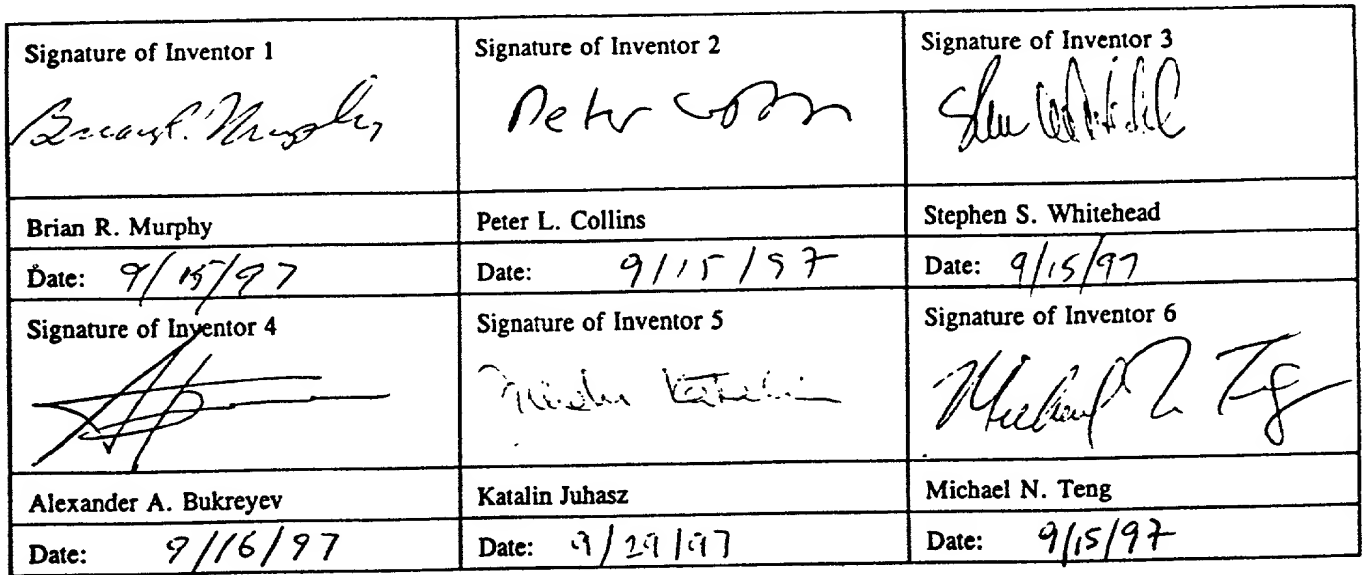 Signature of Inventor 1
Signature of Inventor 2
Signature of Inventor 3
Brian R. Murphy
Peter Collins
Brian R. Murphy
Peter L. Collins
Stephen S. Whitehead
Date: 9/15/97
Date: 9/15/97
Date: 9/15/97
Signature of Inventor 4
Signature of Inventor 5
Signature of Inventor 6
Juhasz Katalin
Michael N. Teng
Alexander A. Bukreyev
Katalin Juhasz
Michael N. Teng
Date: 9/16/97
Date: 9/29/97
Date: 9/15/97